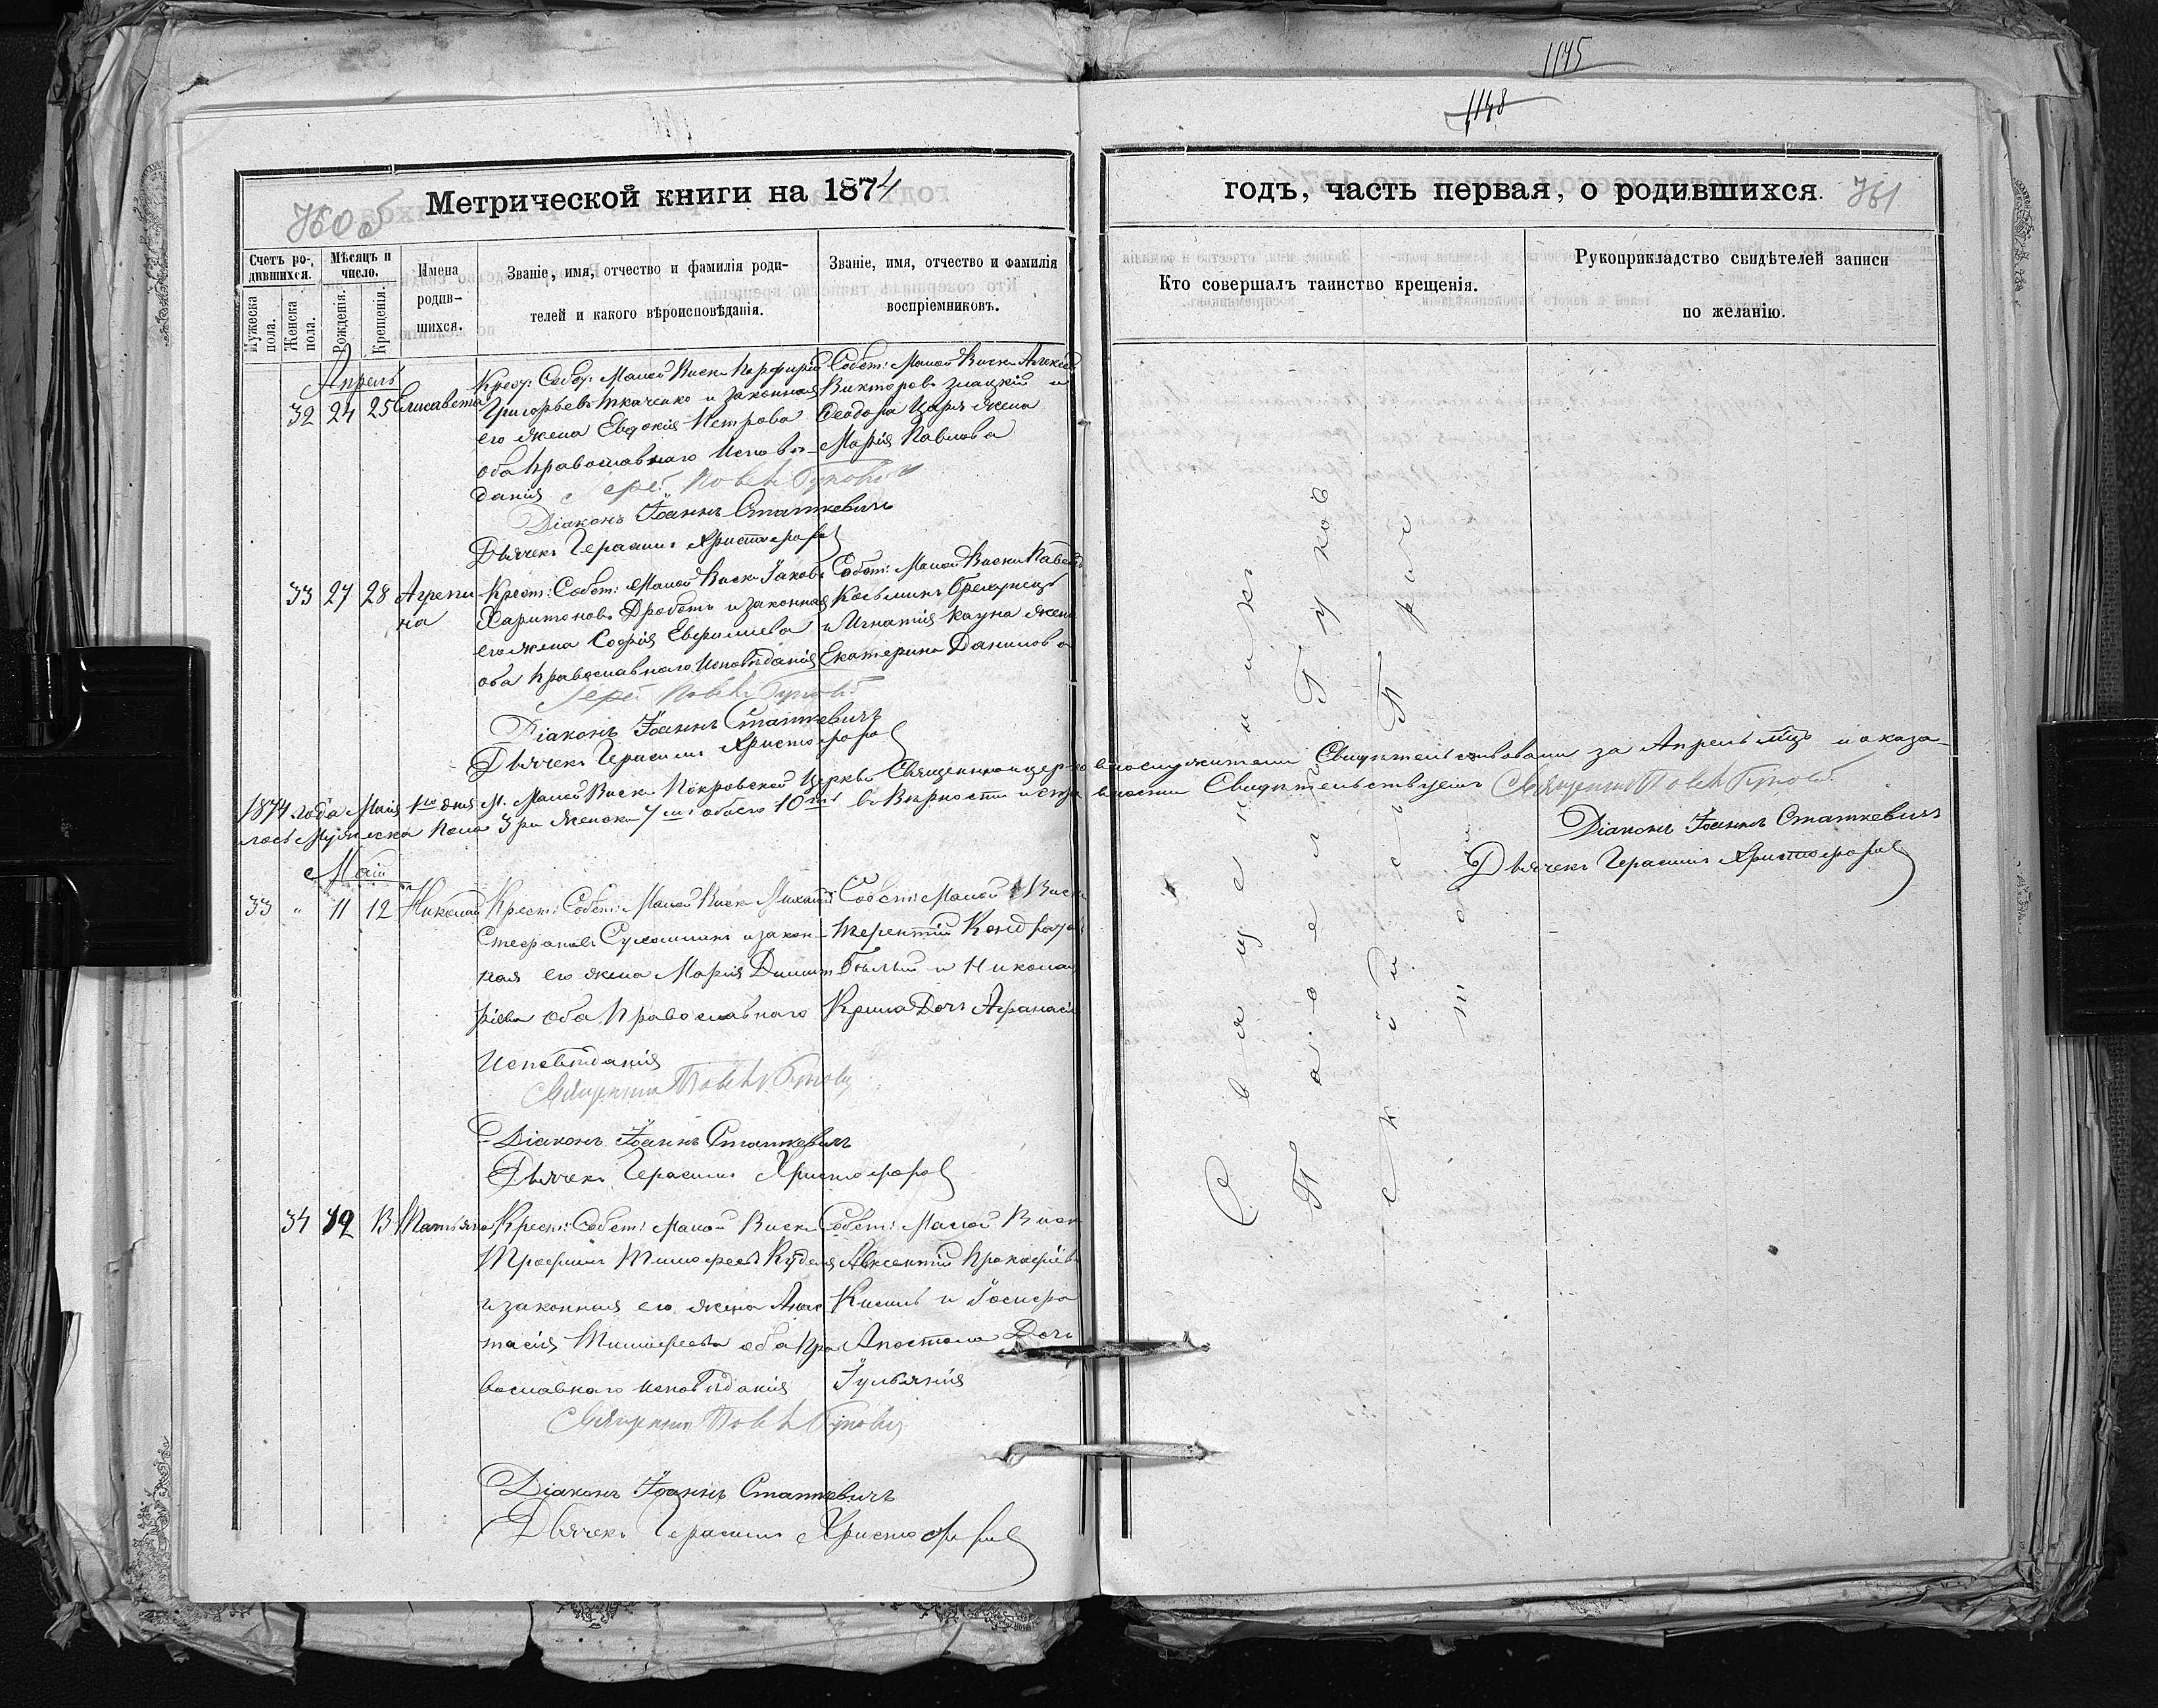 1145
1148
Метрической книги на 1874
760 об
годъ, часть первая, о родившихся.
761
Счетъ родившихся.
Мужеска пола.
Женска пола.
Мѣсяцъ и число.
Рожденія.
Крещенія.
Имена родившихся.
Званіе, имя, отчество и фамилія родителей и какого вѣроисповѣданія.
Званіе, имя, отчество и фамилія воспріемниковъ.
Кто совершалъ таинство крещенія.
Рукоприкладство свидѣтелей записи по желанію.
Апрель
32 24 25 Елисавета
Крест: Собст: Малой Виски Порфирій
Григорьевъ Ткаченко и законная
его жена Евдокія Петрова
оба православнаго Исповѣ-
данія
Собст: Малой Виски Алексѣй
Викторовъ и
Феодора Царя жена
Марія Павлова
Іерей
Діаконъ Іоаннъ Статкевичъ
Дьячекъ Герасимъ Христофоров
33 27 28 Агрепи
на
Крест: Собст: Малой Виски Іаковъ
Харитоновъ Дроботъ и законная
его жена Софія Евфимиева
оба православнаго Исповѣданія
Собст: Малой Виски Павелъ
Косьминъ
и Игнатія Кауна жена
Екатерина Данилова
Іерей
Діаконъ Іоаннъ Статкевичъ
Дьячекъ Герасимъ Христофоров
1874 года Маія 1го дня М. Малой Виски Покровской Церкви Священноцерковнослужители Свидѣтельствовали за Апрель мцъ и оказа-
лось Мужеска пола 3 ри женска 7 м обоего 10ть въ вѣрности и Свидѣтельствуемъ Священникъ
Діаконъ Іоаннъ Статкевичъ
Дьячекъ Герасимъ Христофоров
Май
33 " 11 12 Николай
Крест: Собст: Малой Виски Михаилъ
Стефановъ и закон-
ная его жена Марія Димит
ріева оба Православнаго
Исповѣданія
Собст: Малой Виски
Терентій Кондратовъ
Бѣлый и Николая
Дочь Афанасія
Священникъ
Діаконъ Іоаннъ Статкевичъ
Дьячекъ Герасимъ Христофоров
34 12 13 Татіяна
Крест: Собст: Малой Виски
Трофимъ Тимофеевъ
и законная его жена Анас
тасія Тимофеева оба Пра
вославнаго исповѣданія
Собст: Малой Виски
Авксентій Прокофіевъ
Кисиль и Іосифа
Апостола Дочь
Іульянія
Священникъ
Діаконъ Іоаннъ Статкевичъ
Дьячекъ Герасимъ Христофоров
Священникъ